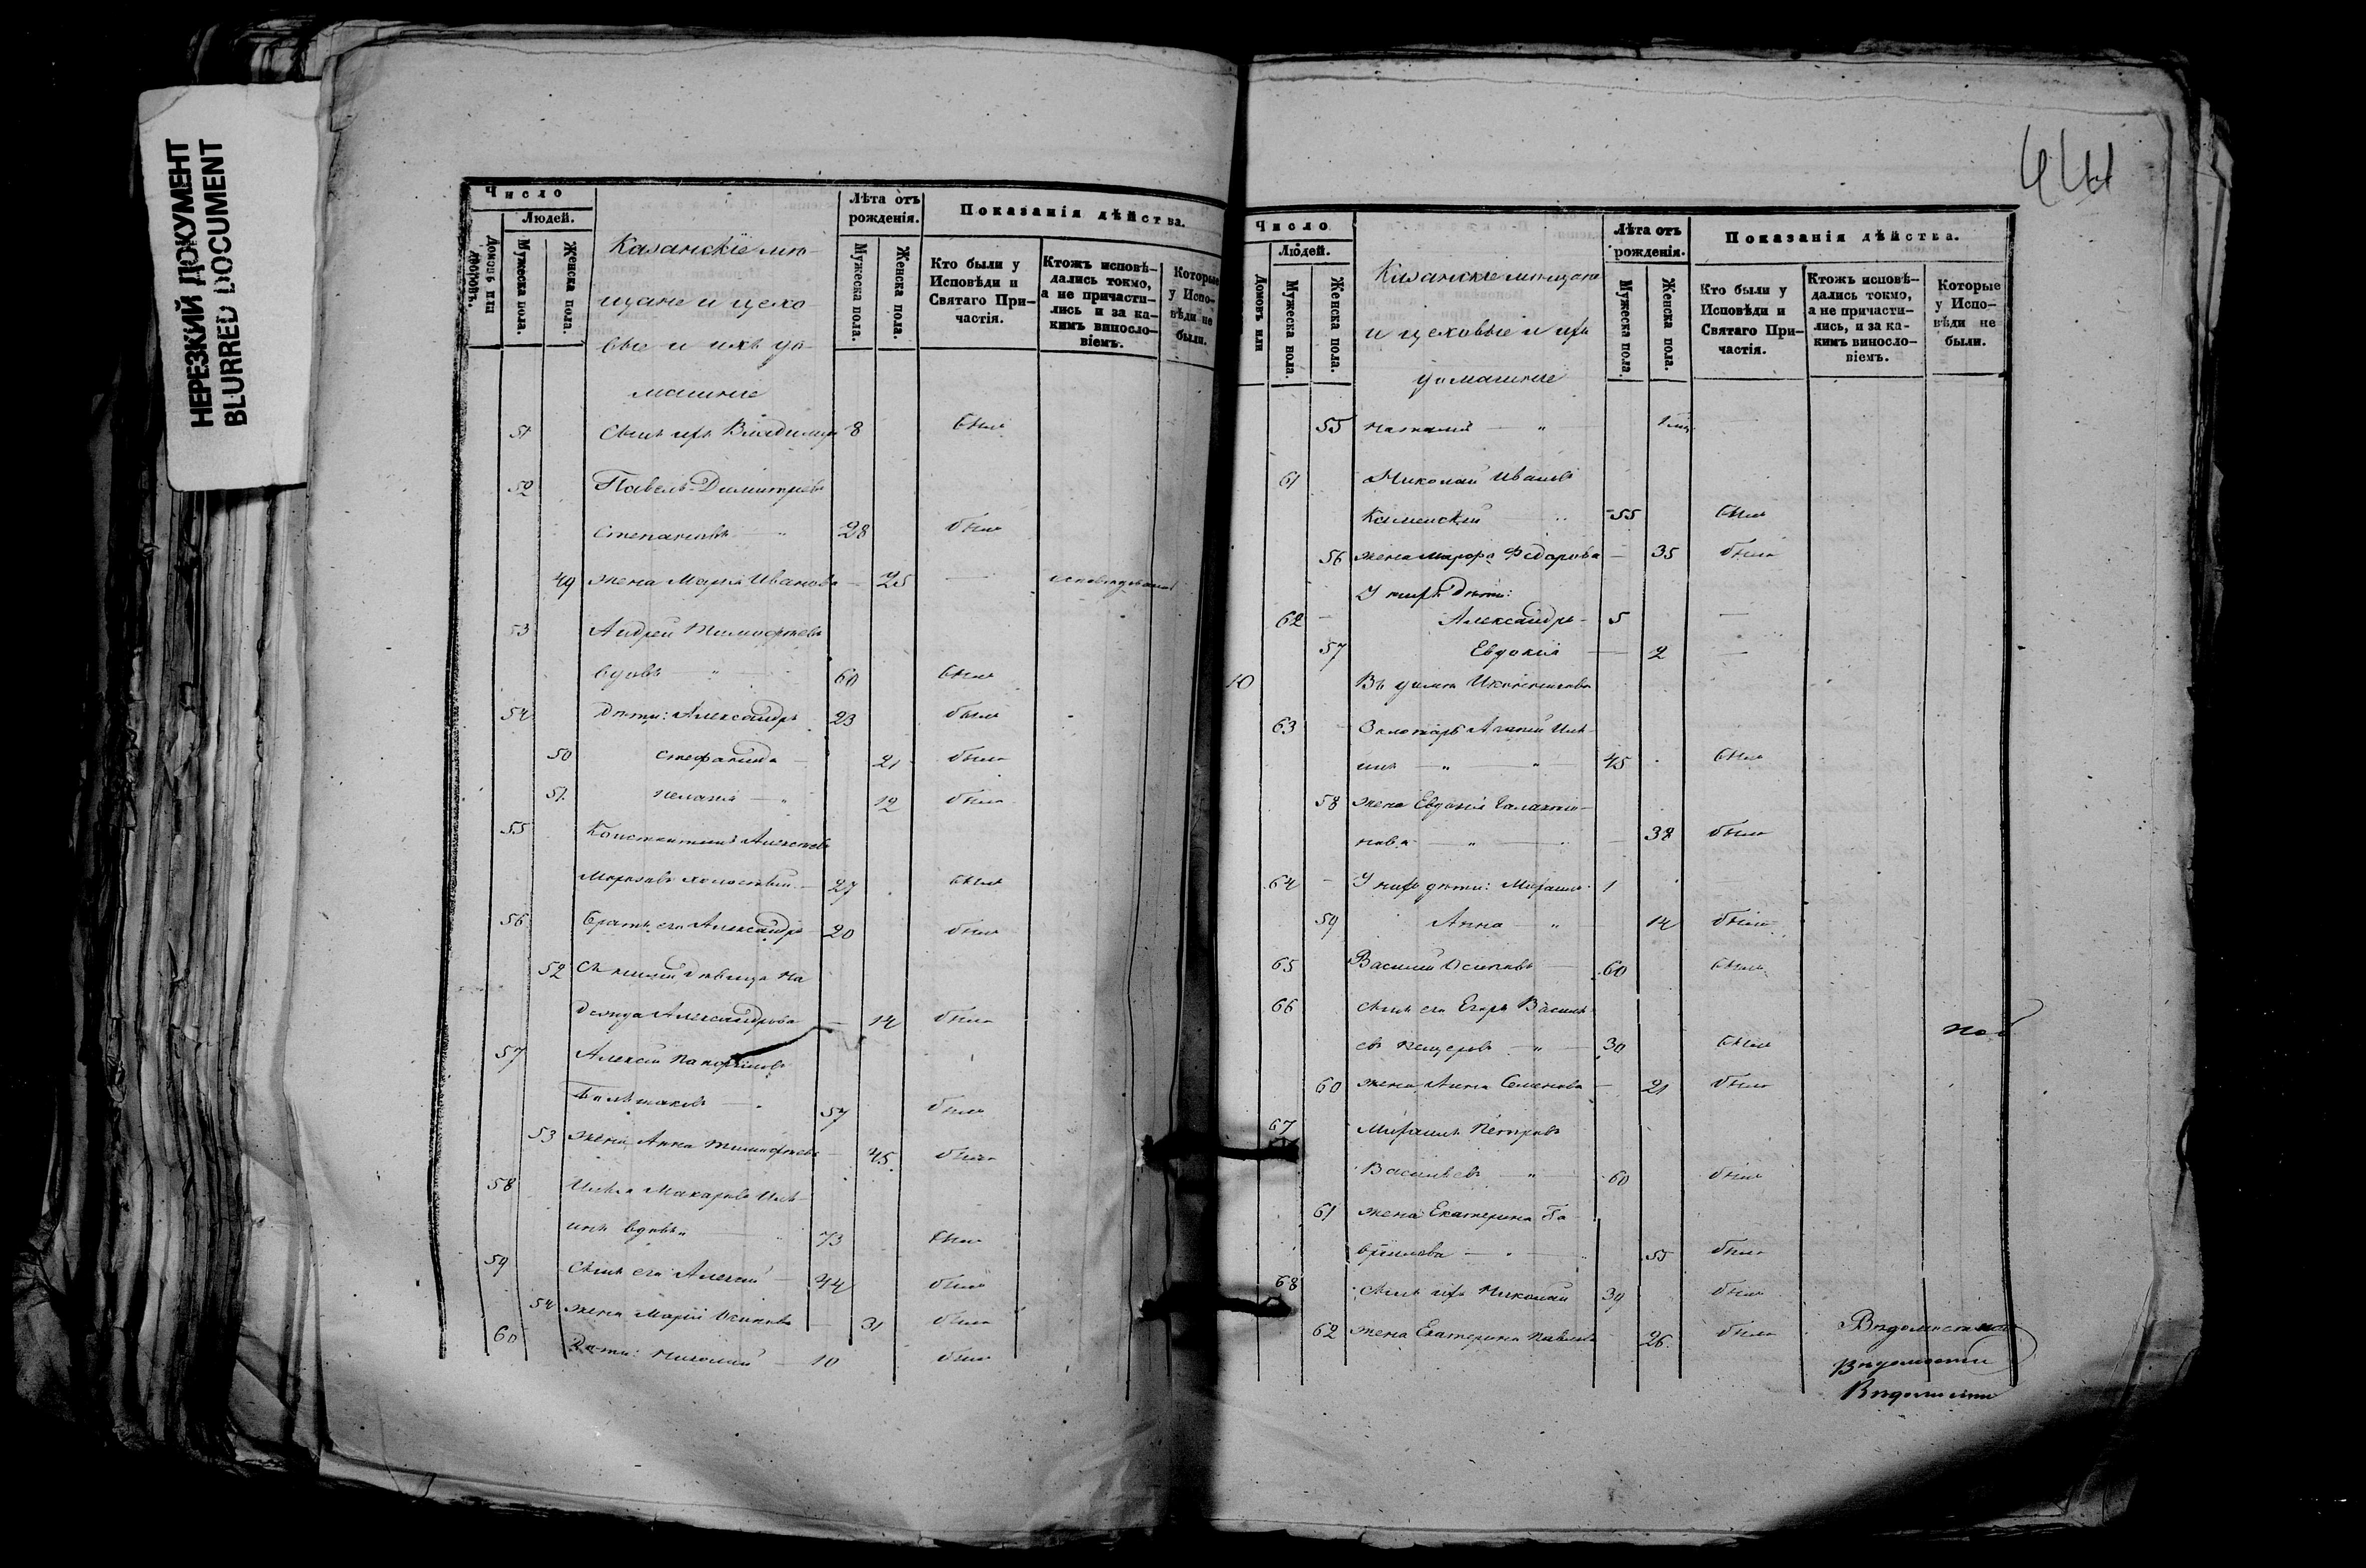 НЕРЕЗКИЙ ДОКУМЕНТ
BLURRED DOCUMENT
Число
Людей.
Домовъ или дворовъ.
Мужеска пола.
Женска пола.
Казанскіе мѣ-
щане и цехо-
вые и ихъ до-
машные
Лѣта отъ рожденія.
Мужеска пола.
Женска пола.
Показанія дѣйства.
Кто были у Исповѣди и Святаго При-
частія.
Ктожъ исповѣ-
дались токмо,
а не причасти-
лись и за ка-
кимъ винос­ло-
віемъ.
Которые
у Испо-
вѣди не
были.
51 Сынъ ихъ Владиміръ 8 былъ
52 Павелъ Димитріевъ
Степановъ — " 28 былъ
49 жена Марія Иванова — 25 —
53 Андрей Тимофѣевъ
вдовъ — " — 60 былъ
54 Дѣти: Александръ 23 былъ
50 Стефанида — 21 была
51 Пелагія — " 12 была
55 Константинъ Алексѣевъ
Морозовъ холостый — 27 былъ
56 Братъ его Александръ 20 былъ
52 дѣвица На
дежда Александрова — 14 была
57 Алексѣй
Большаковъ — " 57 былъ
53 жена Анна Тимофѣева — 45 была
58 Илья Макаровъ Иль-
инъ вдовъ " 73 былъ
59 Сынъ его Алексѣй — 44 былъ
54 жена Марія Осипова — 31 была
60 Дѣти: Николай — 10 былъ
Число
Людей.
Домовъ или
Мужеска пола.
Женска пола.
Казанскіе мѣщане
и цеховые и ихъ
домашные
Лѣта отъ
рожденія.
Мужеска пола.
Женска пола.
Показанія дѣйства.
Кто были у
Исповѣди и
Святаго При-
частія.
Ктожъ исповѣ-
дались токмо,
а не причасти-
лись, и за ка-
кимъ винос­ло-
віемъ.
Которые
у Испо-
вѣди не
были.
55 Наталія — " —
61 Николай Ивановъ
Каменскій — " 55 былъ
56 жена Федорова — 35 была
У нихъ Дѣти:
62 — Александръ — 5 —
57 Евдокія — 2 —
10 Въ домѣ
63 Иль-
инъ — " — " — 45 былъ
58 жена Евдокія Галактіо-
нова — " — " — 38 была
64 — У нихъ дѣти: Михаилъ 1
59 Анна — " — 14 была
65 Василій Осиповъ — 60 былъ
66 Сынъ его Егоръ Василь-
евъ — " — 30 былъ
60 жена Анна Семенова — 21 была
67 Михаилъ Петровъ
Васильевъ — " — 60 былъ
61 жена Екатерина Га-
врилова — " — 55 была
68 Сынъ ихъ Николай 39 былъ
62 жена Екатерина Павлова 26 была
Вѣдомости
Вѣдомости